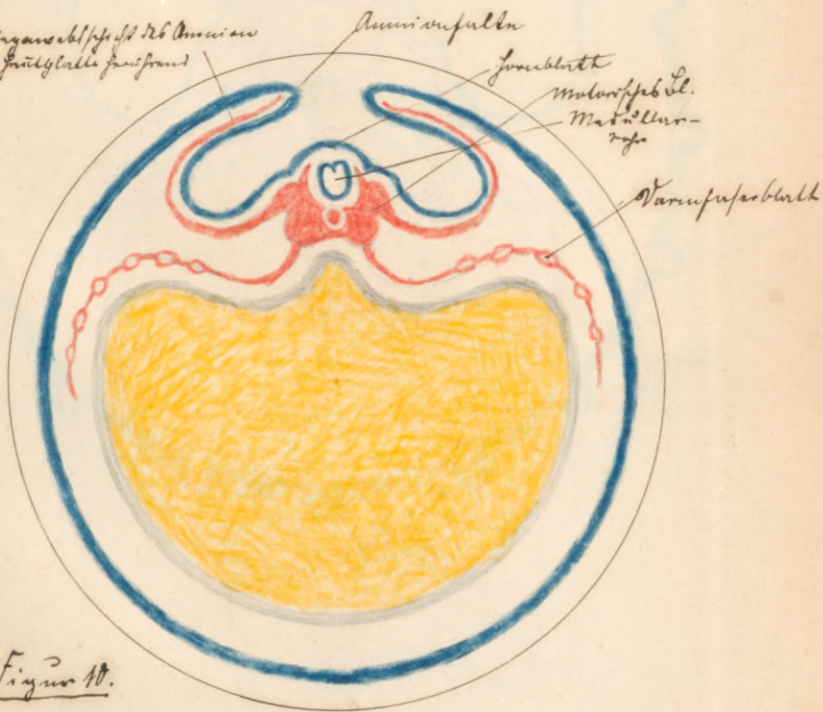 des Amnion
Amnionfalte
Hornblatt
Motorisches Bl.
Medullar-
rohr
Darmfaserblatt
Figur 10.